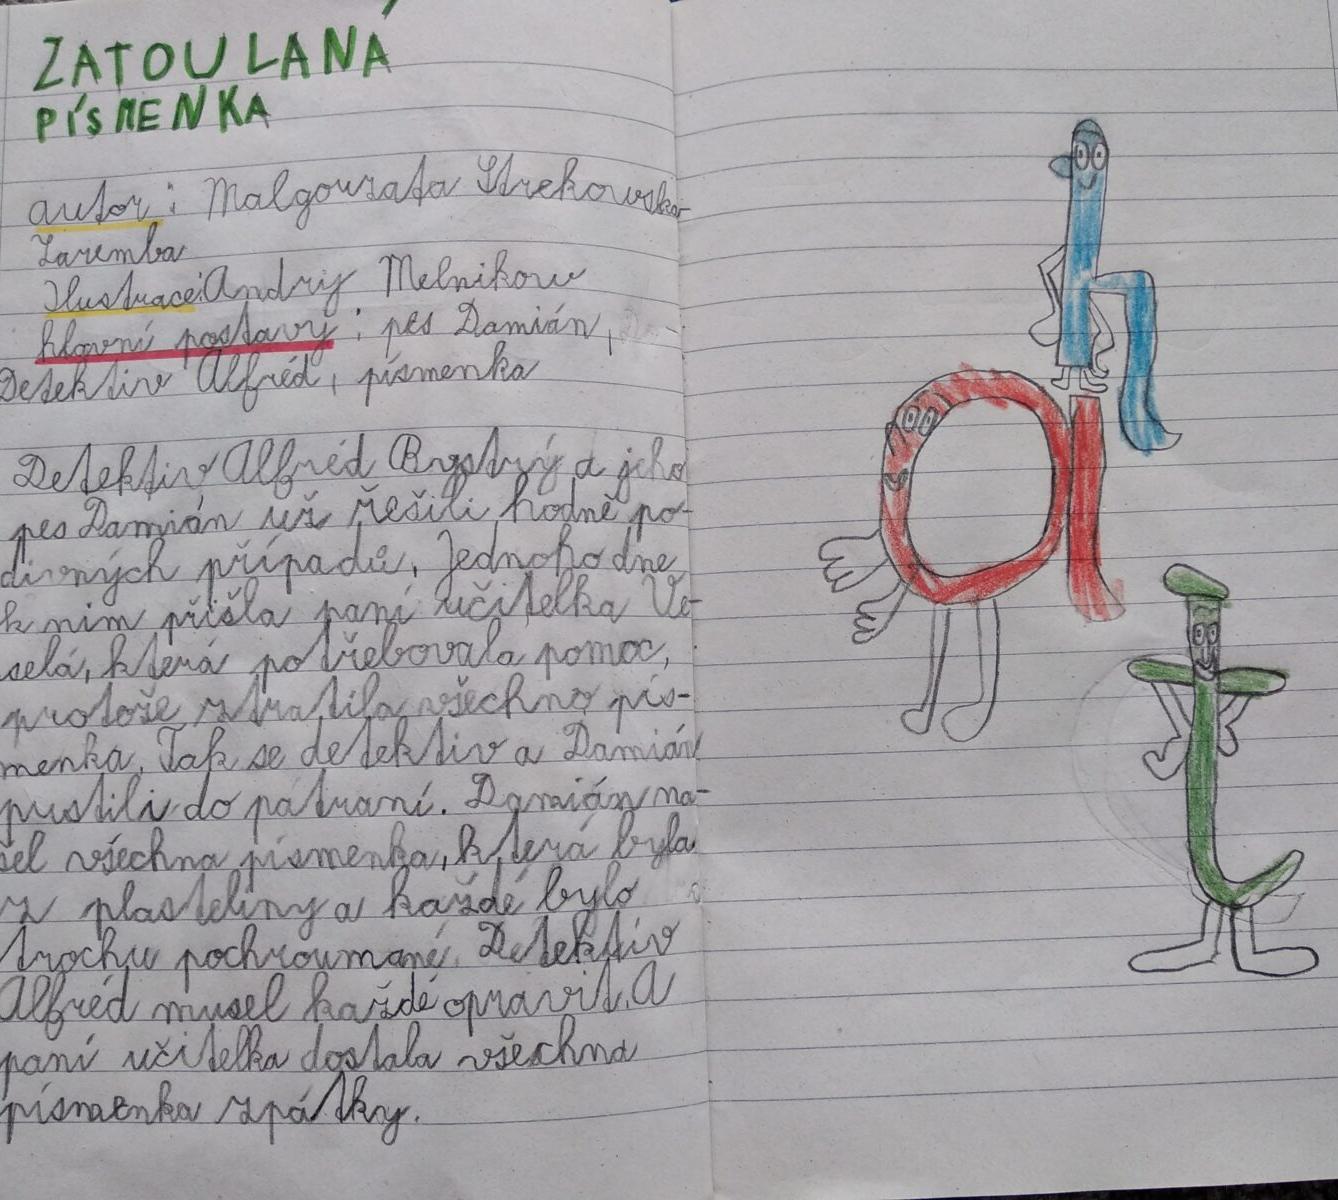 ZATOULANÁ
PÍSMENKA
autor: Malgourzata Strekowska-
Zaremba
Ilustrace: Andrij Melnikow
hlavní postavy: pes Damián,
Detektiv Alfréd, písmenka
Detektiv Alfréd Bystrý a jeho
pes Damián už řešili hodně po-
divných případů, Jednoho dne
k nim přišla paní učitelka Ve-
selá, která potřebovala pomoc,
protože ztratila všechno pís-
menka. Tak se detektiv a Damián
pustili do pátraní. Damián na-
šel všechna písmenka, která byla
z plastelíny a každé bylo
trochu pochroumané. Detektiv
Alfréd musel každé opravit. A
paní učitelka dostala všechna
písmenka zpátky.